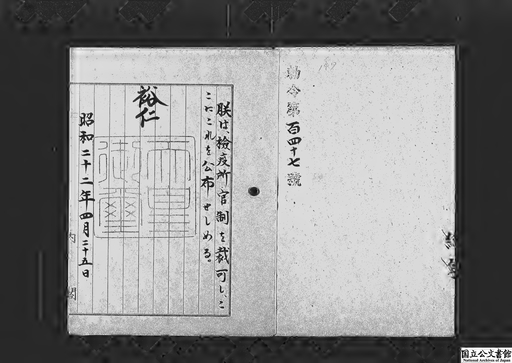 勅令第百四十七號
朕は、檢疫所官制を裁可し、こ
こにこれを公布せしめる。
裕仁
天皇御璽
昭和二十二年四月二十五日
内閣
国立公文書館
National Archives of Japan